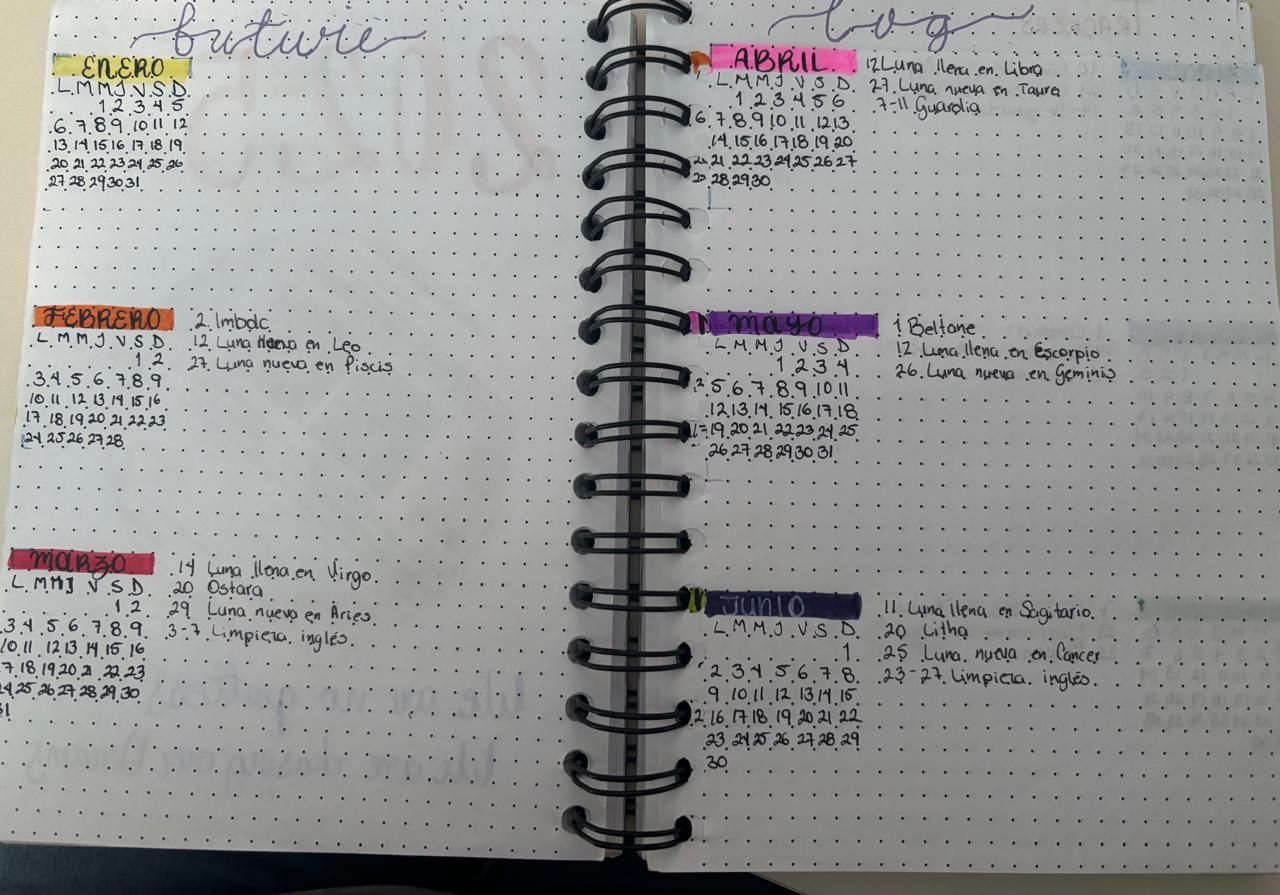 future log
ENERO
L M M J V S D
1 2 3 4 5
6 7 8 9 10 11 12
13 14 15 16 17 18 19
20 21 22 23 24 25 26
27 28 29 30 31
FEBRERO
L M M J V S D
1 2
3 4 5 6 7 8 9
10 11 12 13 14 15 16
17 18 19 20 21 22 23
24 25 26 27 28
2 Imbolc
12 Luna en Leo
27 Luna nueva en Piscis
MARZO
L M M J V S D
1 2
3 4 5 6 7 8 9
10 11 12 13 14 15 16
17 18 19 20 21 22 23
24 25 26 27 28 29 30
31
14 Luna llena en Virgo
20 Ostara
29 Luna nueva en Aries
3-7 Limpieza inglés
ABRIL
L M M J V S D
1 2 3 4 5 6
7 8 9 10 11 12 13
14 15 16 17 18 19 20
21 22 23 24 25 26 27
28 29 30
12 Luna llena en Libra
27 Luna nueva en Tauro
7-11 Guardia
MAYO
L M M J V S D
1 2 3 4
5 6 7 8 9 10 11
12 13 14 15 16 17 18
19 20 21 22 23 24 25
26 27 28 29 30 31
1 Beltane
12 Luna llena en Escorpio
26 Luna nueva en Geminis
JUNIO
L M M J V S D
1
2 3 4 5 6 7 8
9 10 11 12 13 14 15
16 17 18 19 20 21 22
23 24 25 26 27 28 29
30
11 Luna llena en Sagitario
20 Litha
25 Luna nueva en Cancer
23-27 Limpieza inglés